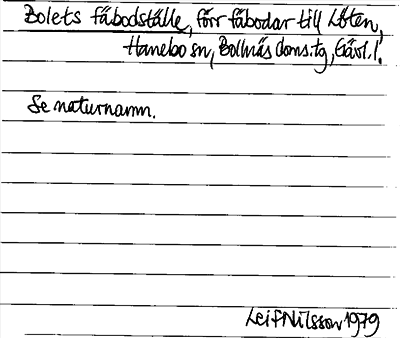 Bolets fäbodställe, förr fäbodar till Löten,
Hanebo sn, Bollnäs doms.tg, Gävl.l.
Se naturnamn.
Leif Nilsson 1979